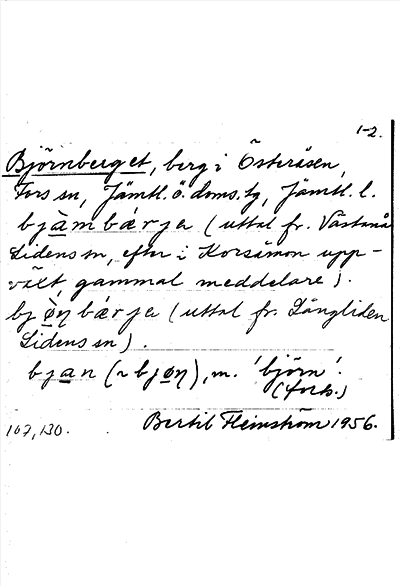 1-2.
Björnberget, berg i Österåsen,
Fors sn, Jämtl. ö. doms. tg, Jämtl. l.
bjàmbǽrja (uttal fr. Västanå
Lidens sn, efter i Korsåmon upp-
växt gammal meddelare).
bjø̀ŋbǽrja (uttal fr. Långliden
Lidens sn).
bjan (~ bjøŋ), m. 'björn'.
(forts.)
167,130. Bertil Flemström 1956.